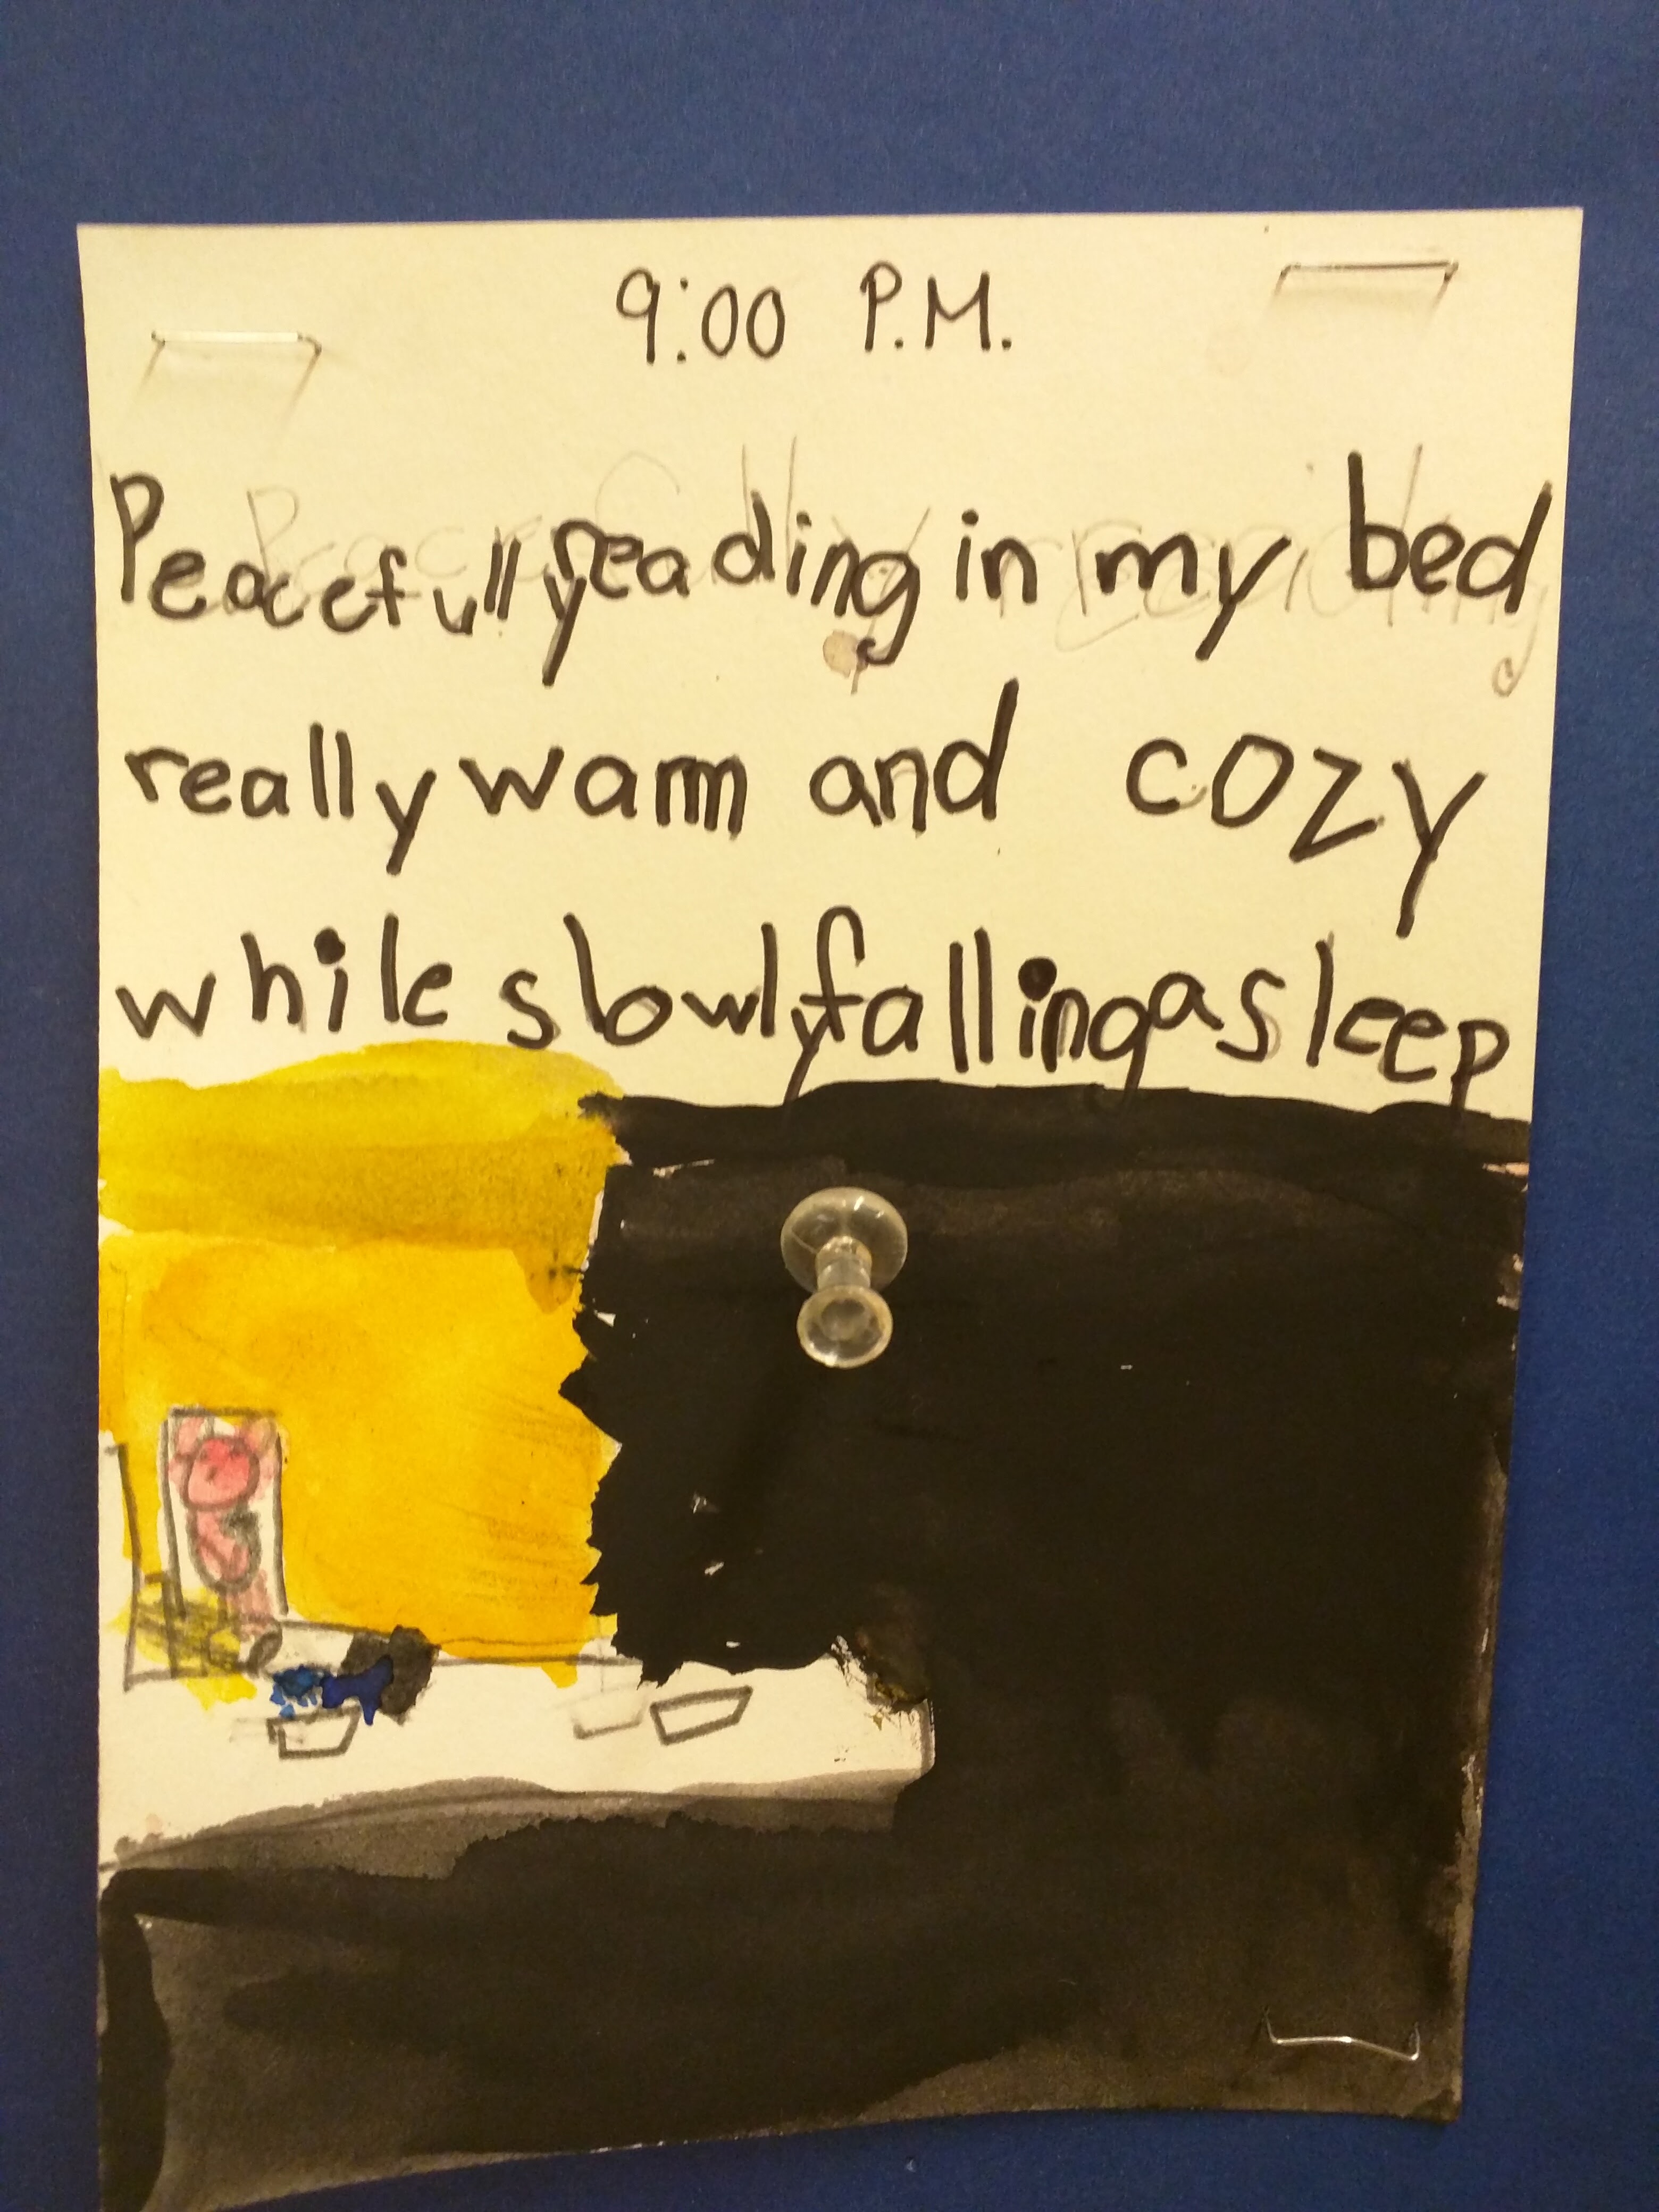 9:00 P.M.
Peacefully reading in my bed
really warm and cozy
while slowly falling asleep